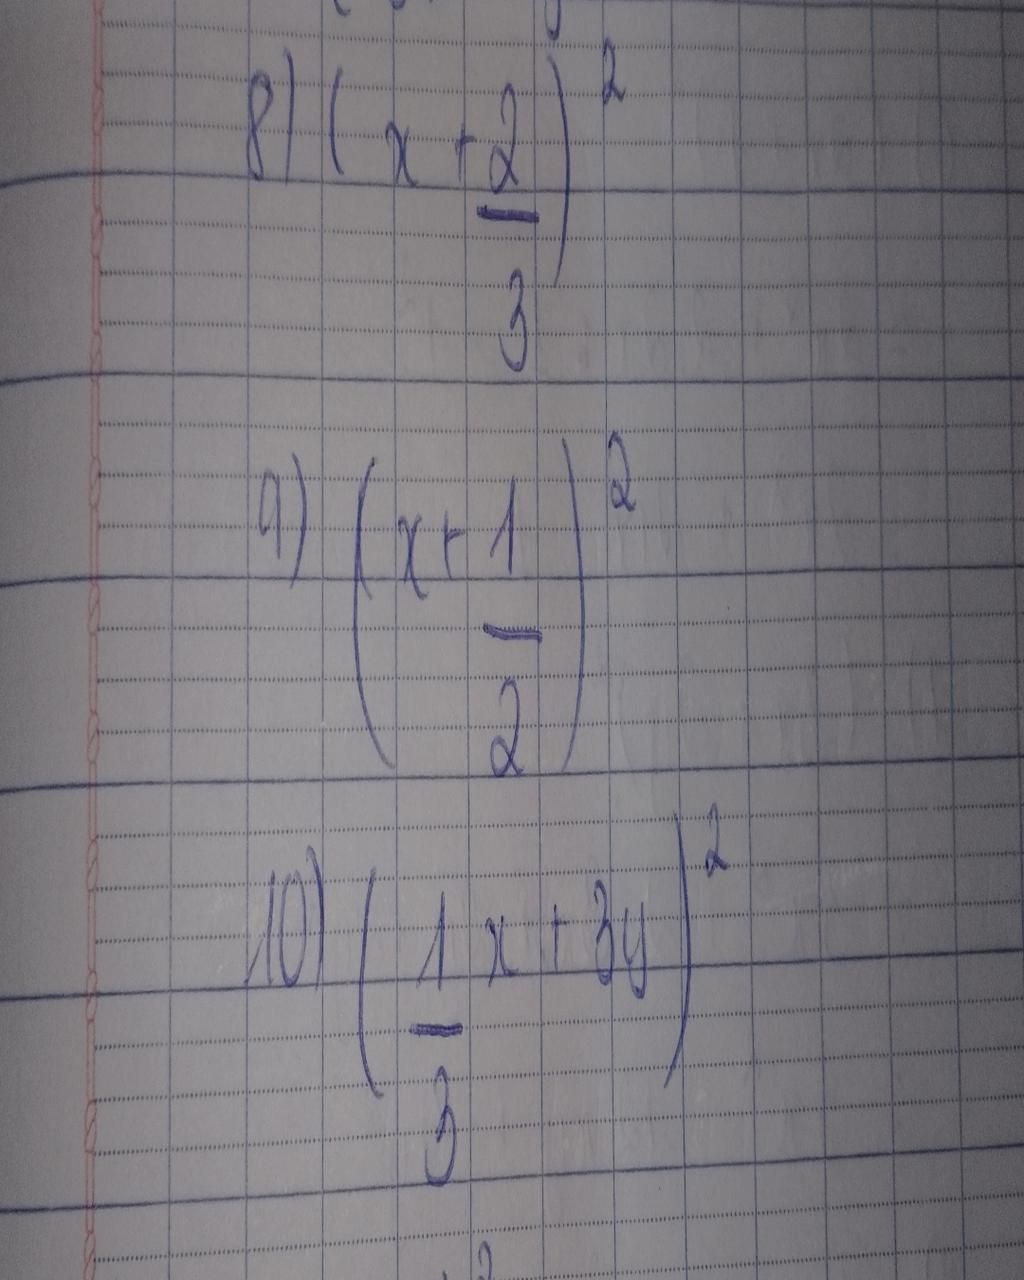 8) (x + 2/3)²
9) (x + 1/2)²
10) (1/3 x + 3y)²